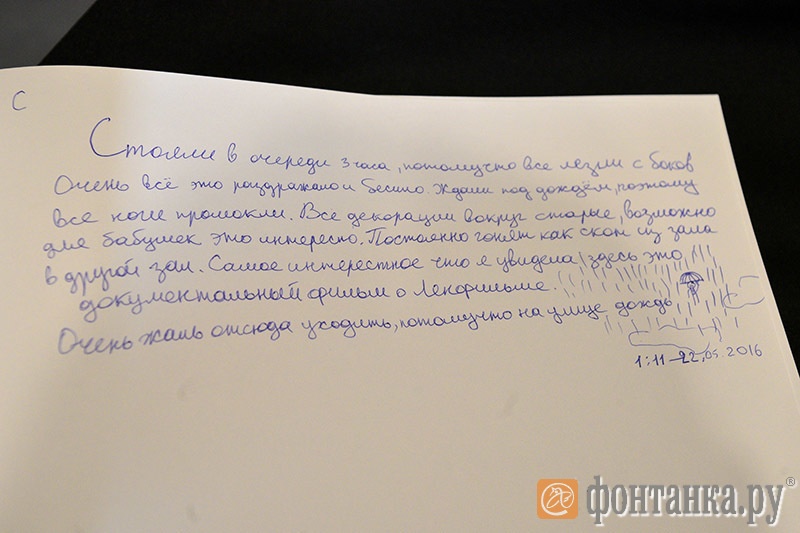 С
Стояли в очереди 3 часа, потомучто все лезли с боков
Очень всё это раздражало и бесило. Ждали под дождём, поэтому
все ноги промокли. Все декорации вокруг старые, возможно
для бабушек это интересно. Постоянно гонят как скот из зала
в другой зал. Самое интерестное что я увидела здесь это
документальный фильм о Ленфильме.
Очень жаль отсюда уходить, потомучто на улице дождь
1:11 – 22.05.2016
фонтанка.ру®